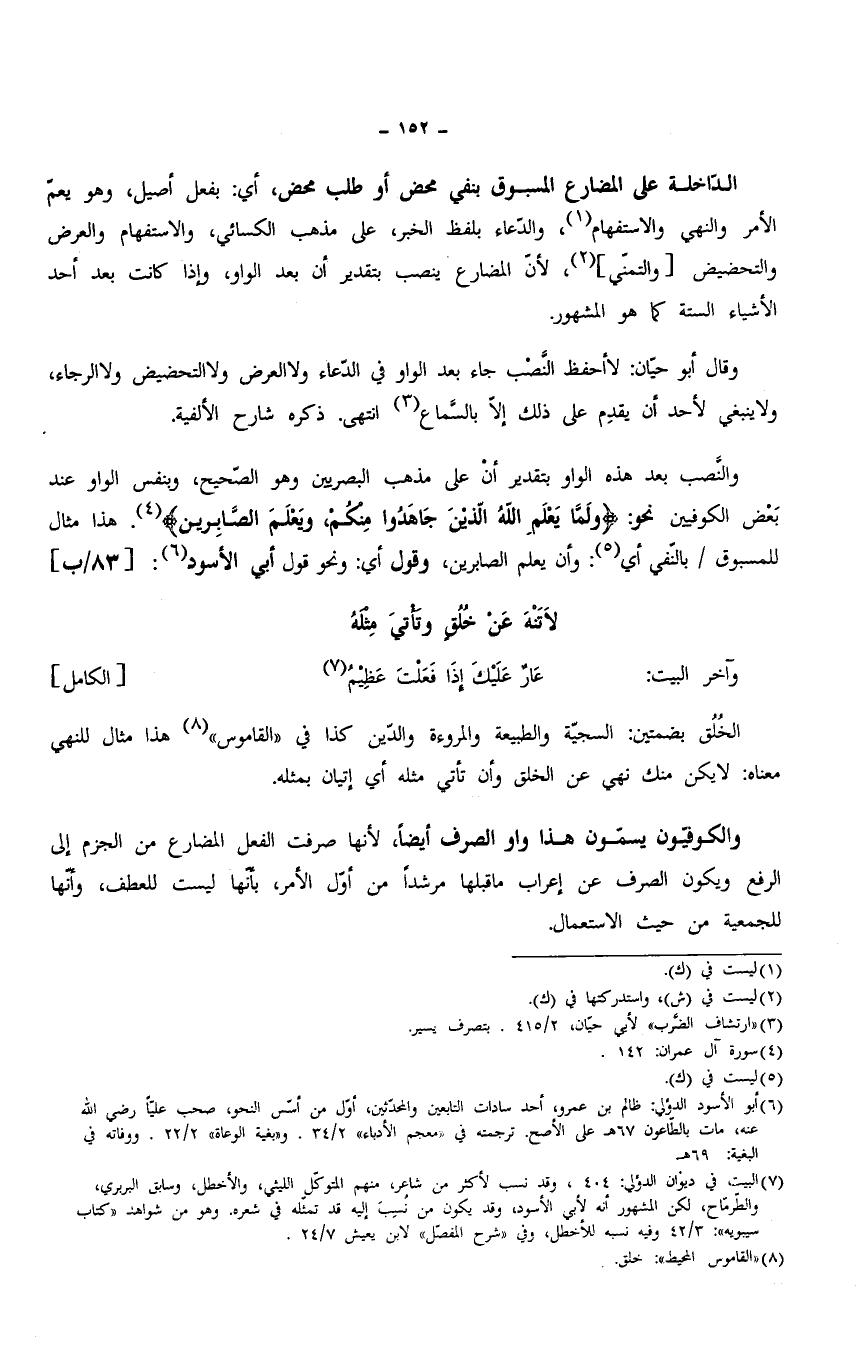 - ١٥٢ -
الـدّاخلـة على المضارع المسبـوق بنفي محض أو طلب محض، أي: بفعل أصيل، وهو يعمّ
الأمر والنهي والاستفهام(١)، والدّعاء بلفظ الخبر، على مذهب الكسائي، والاستفهام والعرض
والتحضيض [والتمنّي](٢)، لأنّ المضارع ينصب بتقدير أن بعد الواو، وإذا كانت بعد أحد
الأشياء الستة كما هو المشهور.
وقال أبو حيّان: لاأحفظ النَّصْب جاء بعد الواو في الدّعاء ولاالعرض ولاالتحضيض ولاالرجاء،
ولاينبغي لأحد أن يقدِم على ذلك إلاّ بالسَّماع(٣) انتهى. ذكره شارح الألفية.
والنَّصب بعد هذه الواو بتقدير أنْ على مذهب البصريين وهو الصّحيح، وبنفس الواو عند
بَعْض الكوفيين نحو: ﴿ولَمَّا يَعْلَمِ اللّهُ الّذينَ جَاهَدُوا مِنْكُمْ، ويَعْلَمَ الصَّـابِـرين﴾(٤). هذا مثال
للمسبوق / بالنّفي أي(٥): وأن يعلم الصابرين، وقول أي: ونحو قول أبي الأسود(٦): [٨٣/ب]
لاَتَنْهَ عَنْ خُلُقٍ وتَأْتيَ مِثْلَهُ
وآخر البيت: عَارٌ عَلَيْكَ إذَا فَعَلْتَ عَظِيْمُ(٧) [الكامل]
الخُلُق بضمتين: السجيّة والطبيعة والمروءة والدّين كذا في «القاموس»(٨) هذا مثال للنهي
معناه: لايكن منك نهي عن الخلق وأن تأتي مثله أي إتيان بمثله.
والكـوفيّـون يسمّـون هـذا واو الصرف أيضاً، لأنها صرفت الفعل المضارع من الجزم إلى
الرفع ويكون الصرف عن إعراب ماقبلها مرشداً من أوّل الأمر، بأنّها ليست للعطف، وأنّها
للجمعية من حيث الاستعمال.
(١)ليست في (ك).
(٢)ليست في (ش)، واستدركتها في (ك).
(٣)«ارتشاف الضَّرب» لأبي حيّان، ٤١٥/٢ . بتصرف يسير.
(٤)سورة آل عمران: ١٤٢ .
(٥)ليست في (ك).
(٦)أبو الأسود الدؤلي: ظالم بن عمرو، أحد سادات التابعين والمحدّثين، أوّل من أسّس النحو، صحب عليّاً رضي الله
عنه، مات بالطّاعون ٦٧هـ على الأصح. ترجمته في «معجم الأدباء» ٣٤/٢ . و«بغية الوعاة» ٢٢/٢ . ووفاته في
البغية: ٦٩هـ
(٧)البيت في ديوان الدؤلي: ٤٠٤ ، وقد نسب لأكثر من شاعر، منهم المتوكّل الليثي، والأخطل، وسابق البربري،
والطّرمّاح، لكن المشهور أنه لأبي الأسود، وقد يكون من نُسِبَ إليه قد تمثّله في شعره. وهو من شواهد «كتاب
سيبويه»: ٤٢/٣ وفيه نسبه للأخطل، وفي «شرح المفصّل» لابن يعيش ٢٤/٧ .
(٨)«القاموس المحيط»: خلق.